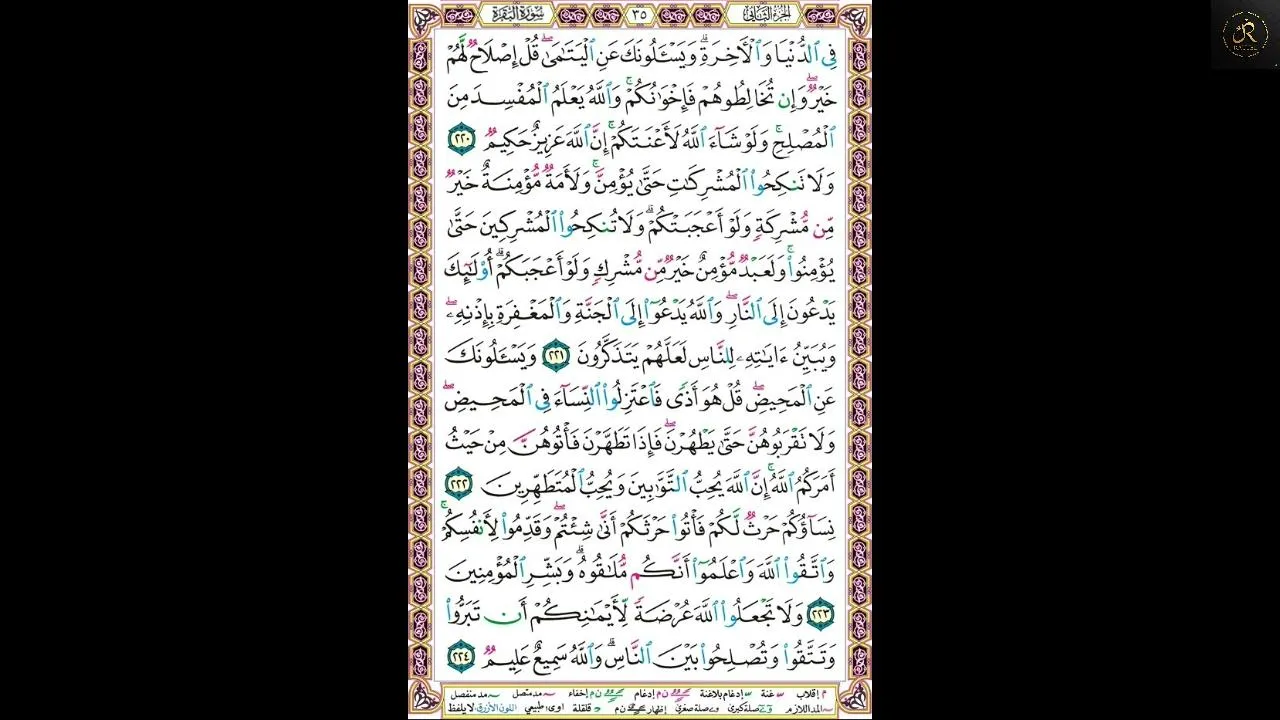 الجزء الثاني ٣٥ سورة البقرة
فِي الدُّنْيَا وَالْآخِرَةِ ۗ وَيَسْـَٔلُونَكَ عَنِ الْيَتَامَىٰ ۖ قُلْ إِصْلَاحٌ لَّهُمْ
خَيْرٌ ۖ وَإِن تُخَالِطُوهُمْ فَإِخْوَٰنُكُمْ ۚ وَاللَّهُ يَعْلَمُ الْمُفْسِدَ مِنَ
الْمُصْلِحِ ۚ وَلَوْ شَآءَ اللَّهُ لَأَعْنَتَكُمْ ۚ إِنَّ اللَّهَ عَزِيزٌ حَكِيمٌ ٢٢٠
وَلَا تَنكِحُوا۟ الْمُشْرِكَٰتِ حَتَّىٰ يُؤْمِنَّ ۚ وَلَأَمَةٌ مُّؤْمِنَةٌ خَيْرٌ
مِّن مُّشْرِكَةٍ وَلَوْ أَعْجَبَتْكُمْ ۗ وَلَا تُنكِحُوا۟ الْمُشْرِكِينَ حَتَّىٰ
يُؤْمِنُوا۟ ۚ وَلَعَبْدٌ مُّؤْمِنٌ خَيْرٌ مِّن مُّشْرِكٍ وَلَوْ أَعْجَبَكُمْ ۗ أُو۟لَٰٓئِكَ
يَدْعُونَ إِلَى النَّارِ ۖ وَاللَّهُ يَدْعُوٓا۟ إِلَى الْجَنَّةِ وَالْمَغْفِرَةِ بِإِذْنِهِۦ ۖ
وَيُبَيِّنُ ءَايَٰتِهِۦ لِلنَّاسِ لَعَلَّهُمْ يَتَذَكَّرُونَ ٢٢١ وَيَسْـَٔلُونَكَ
عَنِ الْمَحِيضِ ۖ قُلْ هُوَ أَذًى فَاعْتَزِلُوا۟ النِّسَآءَ فِي الْمَحِيضِ ۖ
وَلَا تَقْرَبُوهُنَّ حَتَّىٰ يَطْهُرْنَ ۖ فَإِذَا تَطَهَّرْنَ فَأْتُوهُنَّ مِنْ حَيْثُ
أَمَرَكُمُ اللَّهُ ۚ إِنَّ اللَّهَ يُحِبُّ التَّوَّٰبِينَ وَيُحِبُّ الْمُتَطَهِّرِينَ ٢٢٢
نِسَآؤُكُمْ حَرْثٌ لَّكُمْ فَأْتُوا۟ حَرْثَكُمْ أَنَّىٰ شِئْتُمْ ۖ وَقَدِّمُوا۟ لِأَنفُسِكُمْ ۚ
وَاتَّقُوا۟ اللَّهَ وَاعْلَمُوٓا۟ أَنَّكُم مُّلَٰقُوهُ ۗ وَبَشِّرِ الْمُؤْمِنِينَ
٢٢٣ وَلَا تَجْعَلُوا۟ اللَّهَ عُرْضَةً لِّأَيْمَٰنِكُمْ أَن تَبَرُّوا۟
وَتَتَّقُوا۟ وَتُصْلِحُوا۟ بَيْنَ النَّاسِ ۗ وَاللَّهُ سَمِيعٌ عَلِيمٌ ٢٢٤
م إقلاب غنة إدغام بلاغنة ن م إدغام ن م إخفاء مد متصل مد منفصل
المد اللازم صلة كبرى صلة صغرى إظهار ن م قلقلة اوى: طبيعي اللون الأزرق: لا يلفظ